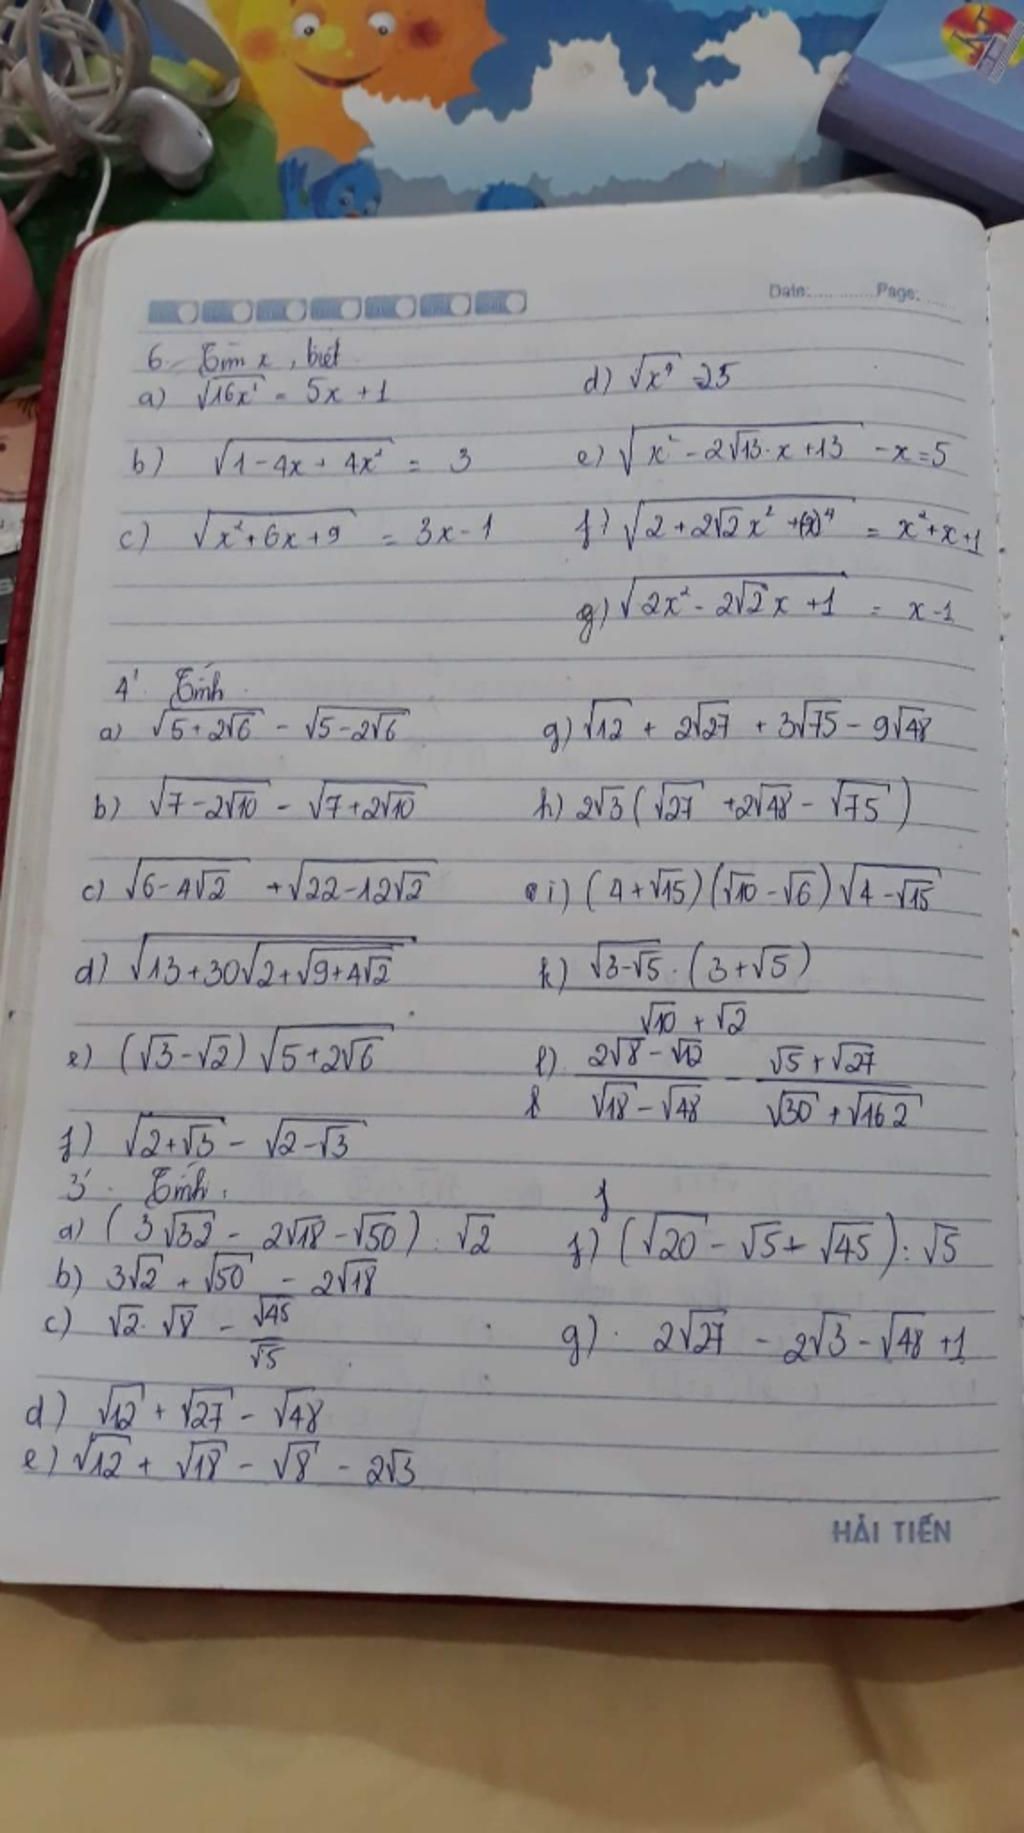 Date:............Page:......
6. Tìm x, biết
a) √16x² = 5x + 1
d) √x⁴ = 25
b) √1 - 4x + 4x² = 3
e) √x² - 2√13·x + 13 - x = 5
c) √x² + 6x + 9 = 3x - 1
f) √2 + 2√2x² + (x)⁴ = x² + x + 1
g) √2x² - 2√2x + 1 = x - 1
4. Tính
a) √5 + 2√6 - √5 - 2√6
g) √12 + 2√27 + 3√75 - 9√48
b) √7 - 2√10 - √7 + 2√10
h) 2√3 (√27 + 2√48 - √75)
c) √6 - 4√2 + √22 - 12√2
i) (4 + √15)(√10 - √6)√4 - √15
d) √13 + 30√2 + √9 + 4√2
k) √3-√5 · (3 + √5)
√10 + √2
e) (√3 - √2) √5 + 2√6
l) 2√8 - √12 / √18 - √48 - √5 + √27 / √30 + √162
f) √2 + √3 - √2 - √3
3. Tính:
a) (3√32 - 2√18 - √50) : √2
f) (√20 - √5 + √45) : √5
b) 3√2 + √50 - 2√18
c) √2 · √8 - √45 / √5
g) 2√27 - 2√3 - √48 + 1
d) √12 + √27 - √48
e) √12 + √18 - √8 - 2√3
HẢI TIẾN